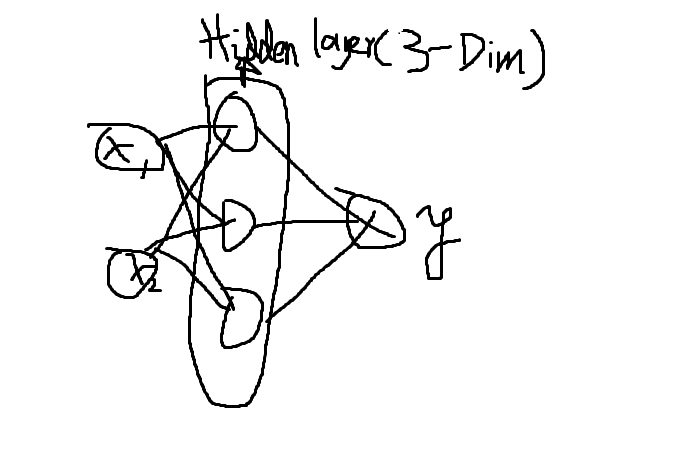 Hidden layer(3-Dim)
x1
x2
y